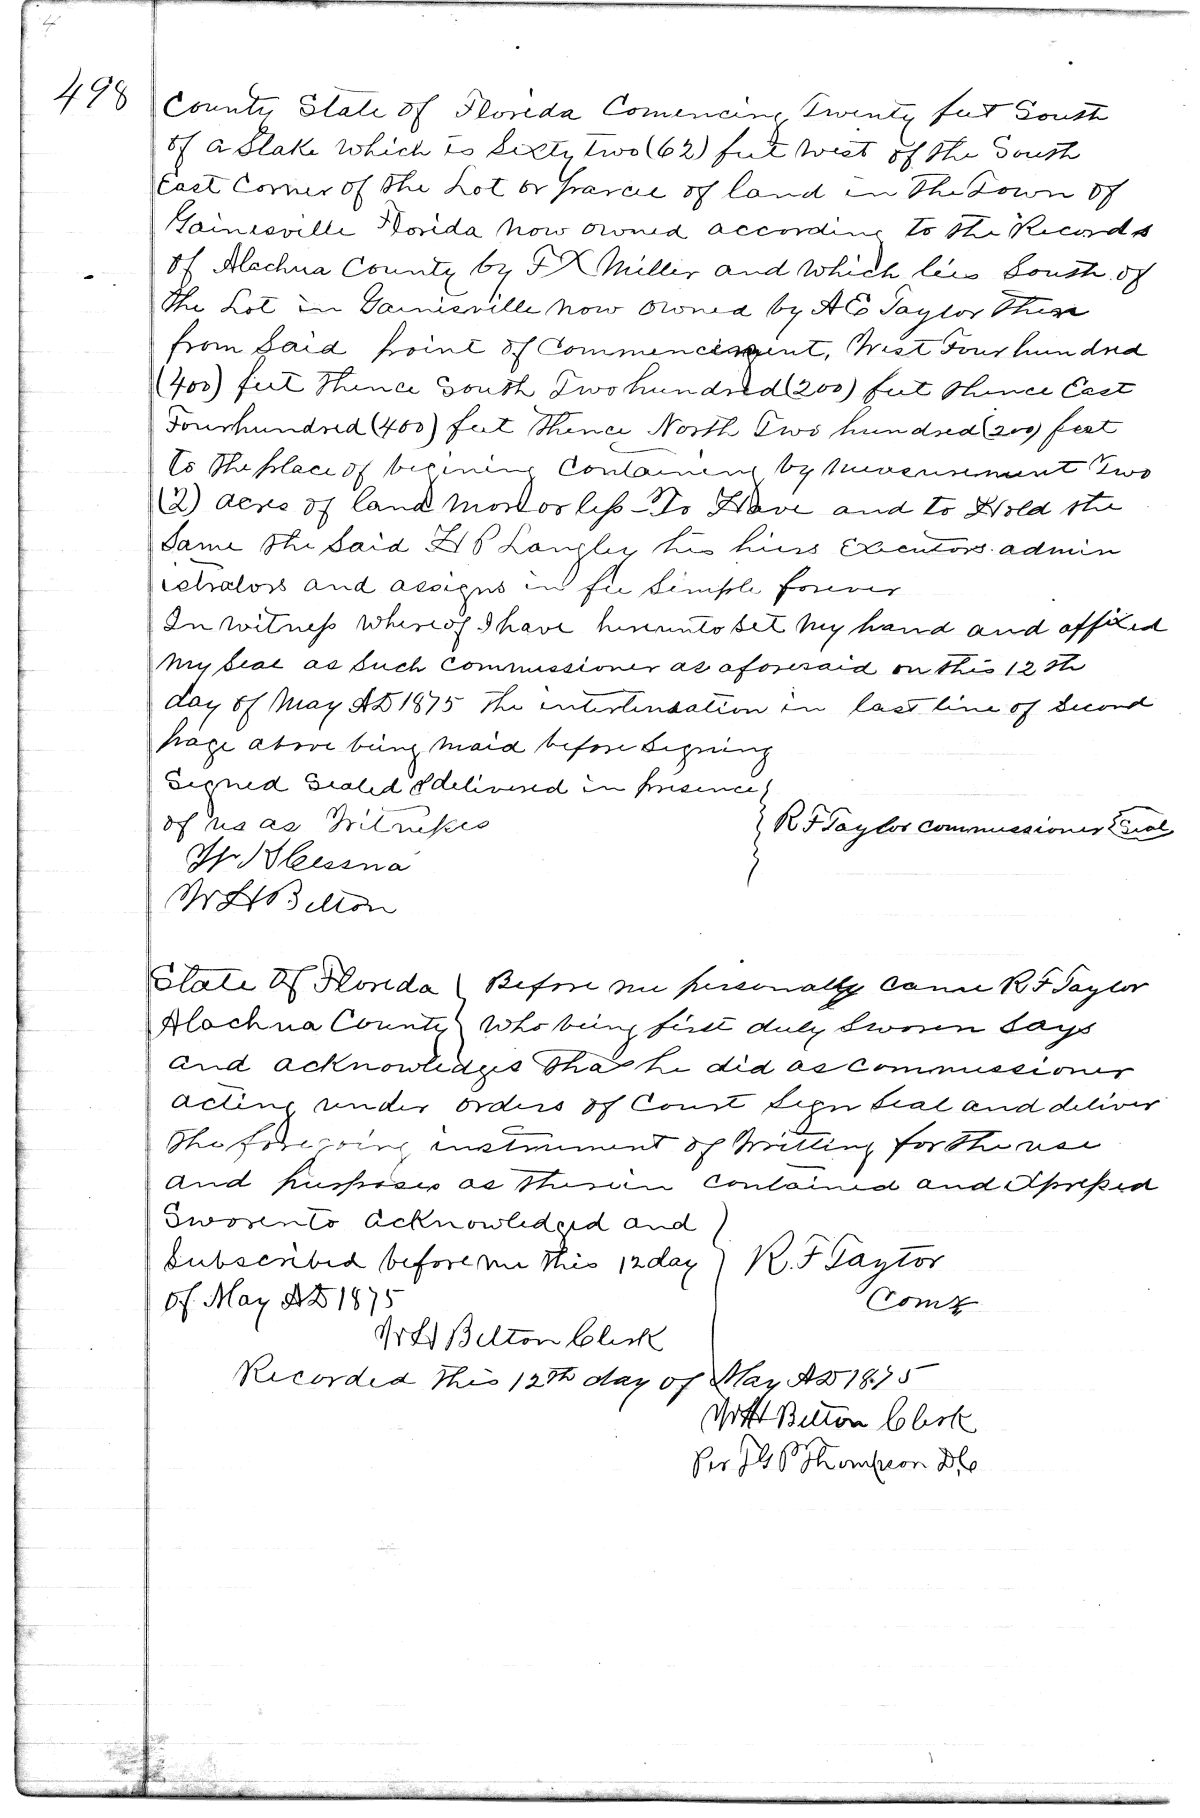 498
County State of Florida Comencing Twenty feet South
of a Stake which is Sixty two (62) feet West of the South
East Corner of the Lot or parcel of land in the Town of
Gainesville Florida now owned according to the Records
of Alachua County by F X Miller and which lies South of
the Lot in Gainesville now owned by A E Taylor then
from Said point of Commencement, West Four hundred
(400) feet thence South Two hundred (200) feet thence East
Four hundred (400) feet thence North Two hundred (200) feet
to the place of begining Containing by measurement Two
(2) acres of land more or less - To Have and to Hold the
Same the Said H P Langley his hiers Executors admin
istrators and assigns in fee Simple forever
In witness whereof I have hereunto Set my hand and affixed
my Seal as Such Commissioner as aforesaid on this 12th
day of May AD 1875 the in last line of Second
page above being maid before Signing
Signed Sealed & delivered in presence
of us as Witnesses
R F Taylor Commissioner Seal
W K Cessna
W H Belton
State of Florida Before me personally came R F Taylor
Alachua County Who being first duly Sworen Says
and acknowledges that he did as Commissioner
acting under orders of Court Sign Seal and deliver
the foregoing instrument of Writting for the use
and purposes as therein Contained and Expressed
Sworento acknowledged and
Subscribed before me this 12 day R. F Taylor
of May AD 1875 Comr
W H Belton Clerk
Recorded this 12th day of May AD 1875
W H Belton Clerk
Per J G P Thompson D.C